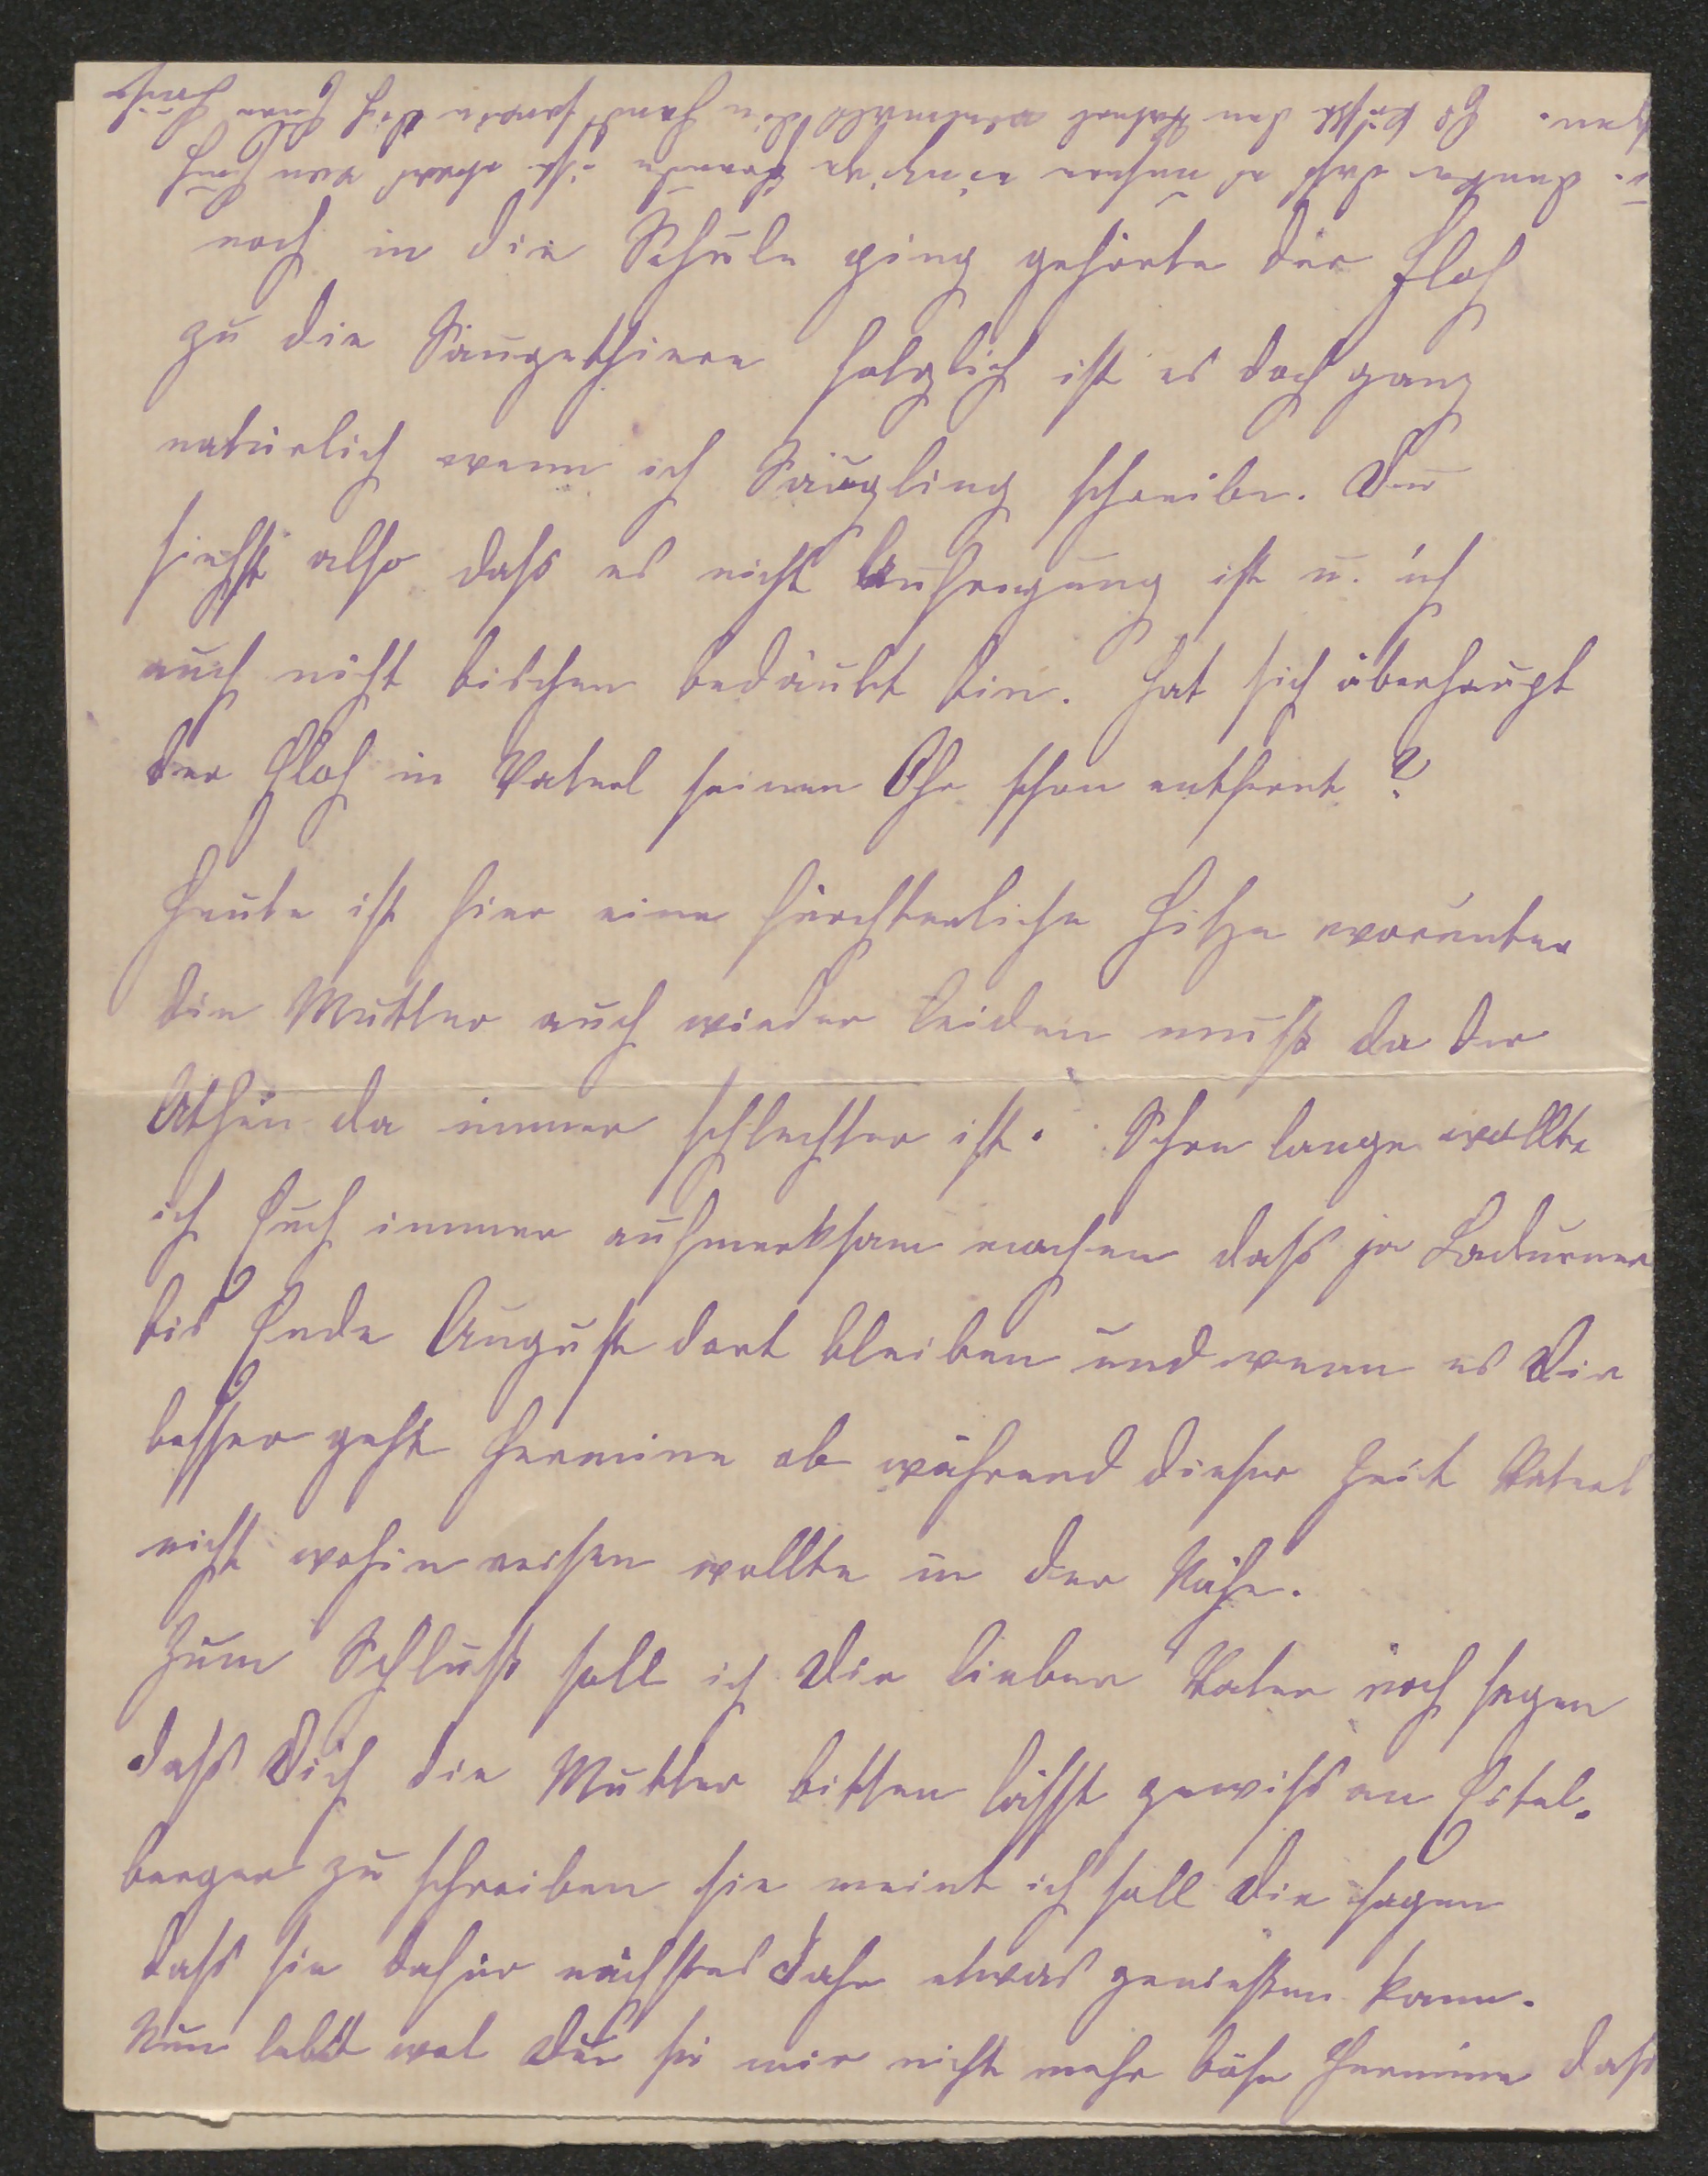 noch in die Schule ging gehörte der Floh
zu die Säugethiere folglich ist es doch ganz
natürlich wenn ich Säugling schreibe. Du
siehst also dass es nicht Aufregung ist u. ich
auch nicht bischen bedäubt bin. Hat sich überhaupt
der Floh in Vaterl seinen Ohr schon entfernt?
Heute ist hier eine fürchterliche Hitze worunter
die Mutter auch wieder leiden muss da der
Athem da immer schlechter ist. Schon lange wollte
ich Euch immer aufmerksam machen dass ja Ladurner
bis Ende August dort bleiben und wenn es Dir
besser geht Hermine ob während dieser Zeit Vaterl
nicht wohin reisen wollte in der Nähe.
Zum Schluss soll ich Dir lieber Vater noch sagen
dass Dich die Mutter bitten lässt gewiss an Estel-
berger zu schreiben sie meint ich soll Dir sagen
dass sie dafür nächstes Jahr etwas geniessen kann.
Nun lebt wol Du sei mir nicht mehr böse Hermine dass
u. denken dass es unsere einzige Freude ist etwas von Euch
Es küsst den Vaterl vielmals die Hand sowie Dich Eure